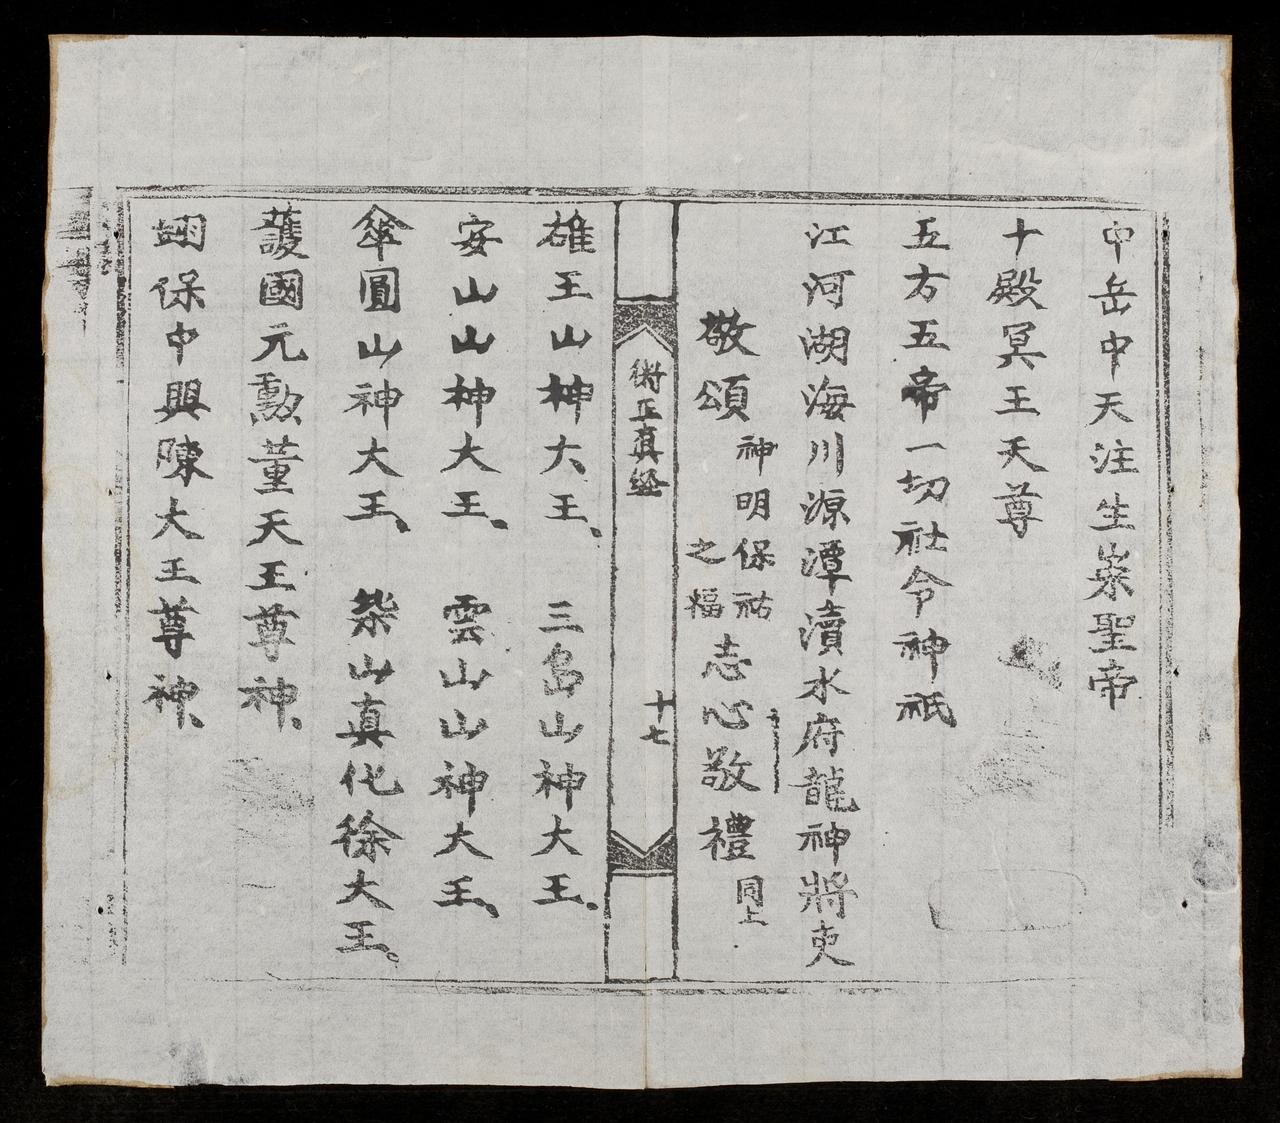 中岳中天注生崇聖帝
十殿冥王天尊
五方五帝一切社令神祇
江河湖海川源潭瀆水府龍神將吏
敬頌神明保祐之福志心敬禮同上
衛正真經 十七
雄王山神大王、三島山神大王、
安山山神大王、雲山山神大王、
傘圓山神大王、柴山真化徐大王。
護國元勳董天王尊神、
翊保中興陳大王尊神、